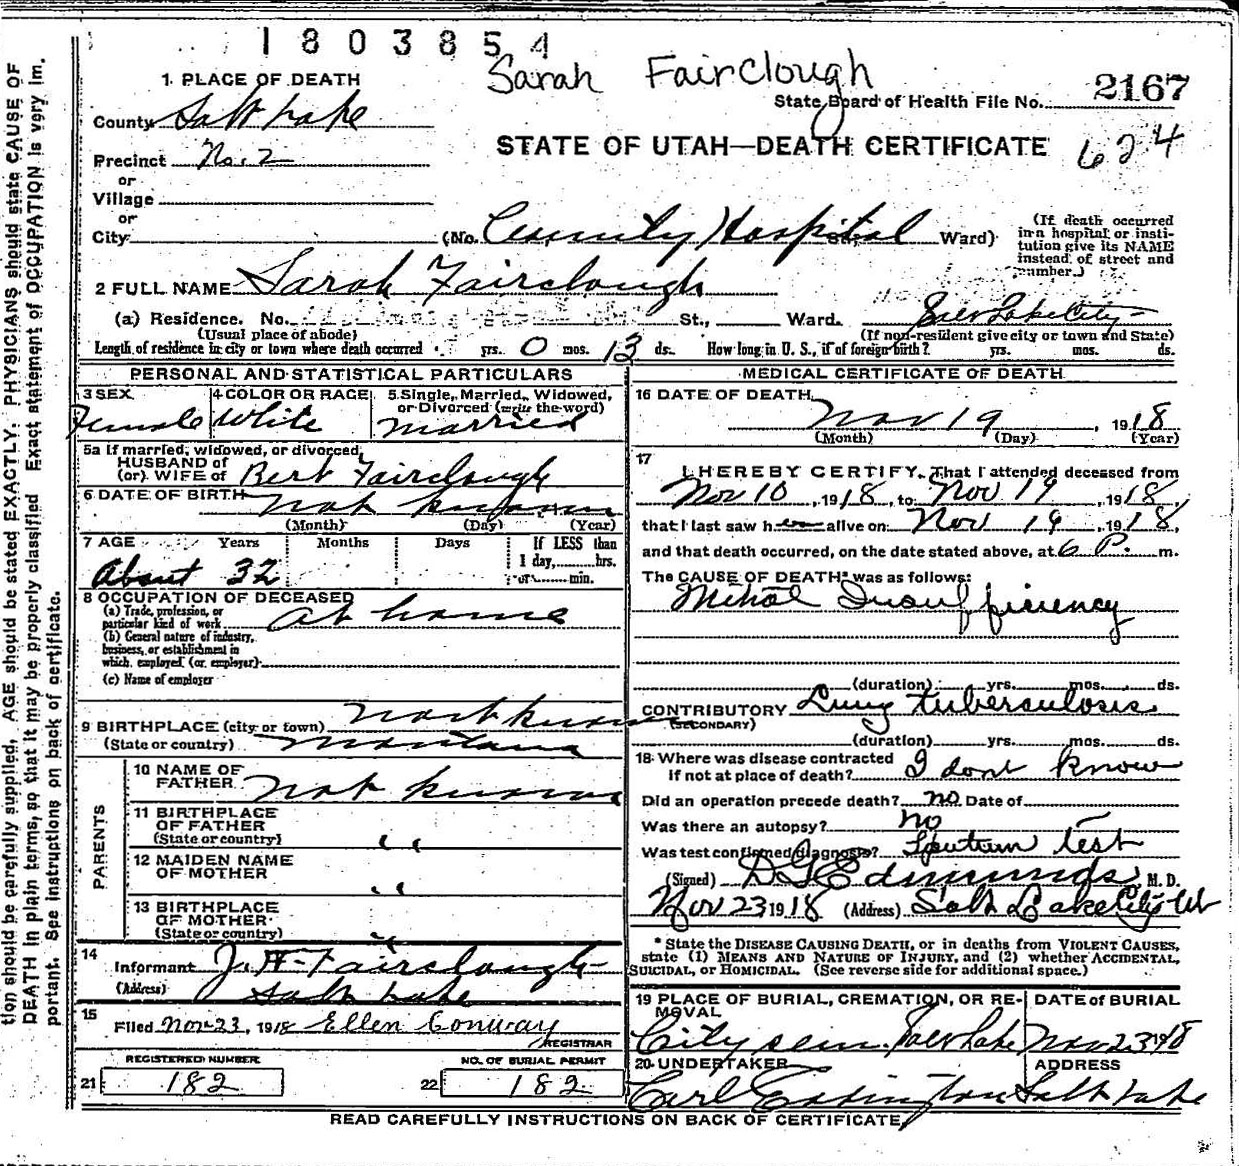 1803854
Sarah Fairclough
1 PLACE OF DEATH
State Board of Health File No. 2167
County Salt Lake
STATE OF UTAH—DEATH CERTIFICATE 624
Precinct No. 2
or
Village
or
City (No. County Hospital St., Ward)
(If death occurred in a hospital or institution give its NAME instead of street and number.)
2 FULL NAME Sarah Fairclough
(a) Residence. No. St., Ward. Salt Lake City
(Usual place of abode) (If non-resident give city or town and State)
Length of residence in city or town where death occurred yrs. 0 mos. 13 ds. How long in U. S., if of foreign birth? yrs. mos. ds.
PERSONAL AND STATISTICAL PARTICULARS
3 SEX Female
4 COLOR OR RACE White
5 Single, Married, Widowed, or Divorced (write the word) Married
5a If married, widowed, or divorced,
HUSBAND of
(or) WIFE of Bert Fairclough
6 DATE OF BIRTH not known
(Month) (Day) (Year)
7 AGE Years Months Days If LESS than 1 day, hrs. or min.
About 32
8 OCCUPATION OF DECEASED
(a) Trade, profession, or particular kind of work at home
(b) General nature of industry, business, or establishment in which employed (or employer)
(c) Name of employer
9 BIRTHPLACE (city or town) not known
(State or country) Montana
PARENTS
10 NAME OF FATHER not known
11 BIRTHPLACE OF FATHER (State or country) " "
12 MAIDEN NAME OF MOTHER " "
13 BIRTHPLACE OF MOTHER (State or country) "
14 Informant J. H. Fairclough
(Address) Salt Lake
15 Filed Nov 23, 1918 Ellen Conway
REGISTRAR
REGISTERED NUMBER
21 182
NO. OF BURIAL PERMIT
22 182
MEDICAL CERTIFICATE OF DEATH
16 DATE OF DEATH Nov 19, 1918
(Month) (Day) (Year)
17 I HEREBY CERTIFY, That I attended deceased from
Nov 10, 1918, to Nov 19, 1918,
that I last saw her alive on Nov 19, 1918,
and that death occurred, on the date stated above, at 6 P. m.
The CAUSE OF DEATH* was as follows:
Mitral Insufficiency
(duration) yrs. mos. ds.
CONTRIBUTORY Lung tuberculosis
(SECONDARY)
(duration) yrs. mos. ds.
18 Where was disease contracted
if not at place of death? I dont know
Did an operation precede death? no Date of
Was there an autopsy? no
Was test confirmed diagnosis? Sputum test
(Signed) D G Edmunds, M. D.
Nov 23 1918 (Address) Salt Lake City Ut
* State the DISEASE CAUSING DEATH, or in deaths from VIOLENT CAUSES,
state (1) MEANS AND NATURE OF INJURY, and (2) whether ACCIDENTAL,
SUICIDAL, or HOMICIDAL. (See reverse side for additional space.)
19 PLACE OF BURIAL, CREMATION, OR REMOVAL
City cem. Salt Lake
DATE of BURIAL
Nov 23 18
20 UNDERTAKER
Carl
ADDRESS
Salt Lake
READ CAREFULLY INSTRUCTIONS ON BACK OF CERTIFICATE
tion should be carefully supplied, AGE should be stated EXACTLY. PHYSICIANS should state CAUSE OF
DEATH in plain terms, so that it may be properly classified Exact statement of OCCUPATION is very im.
portant. See instructions on back of certificate.